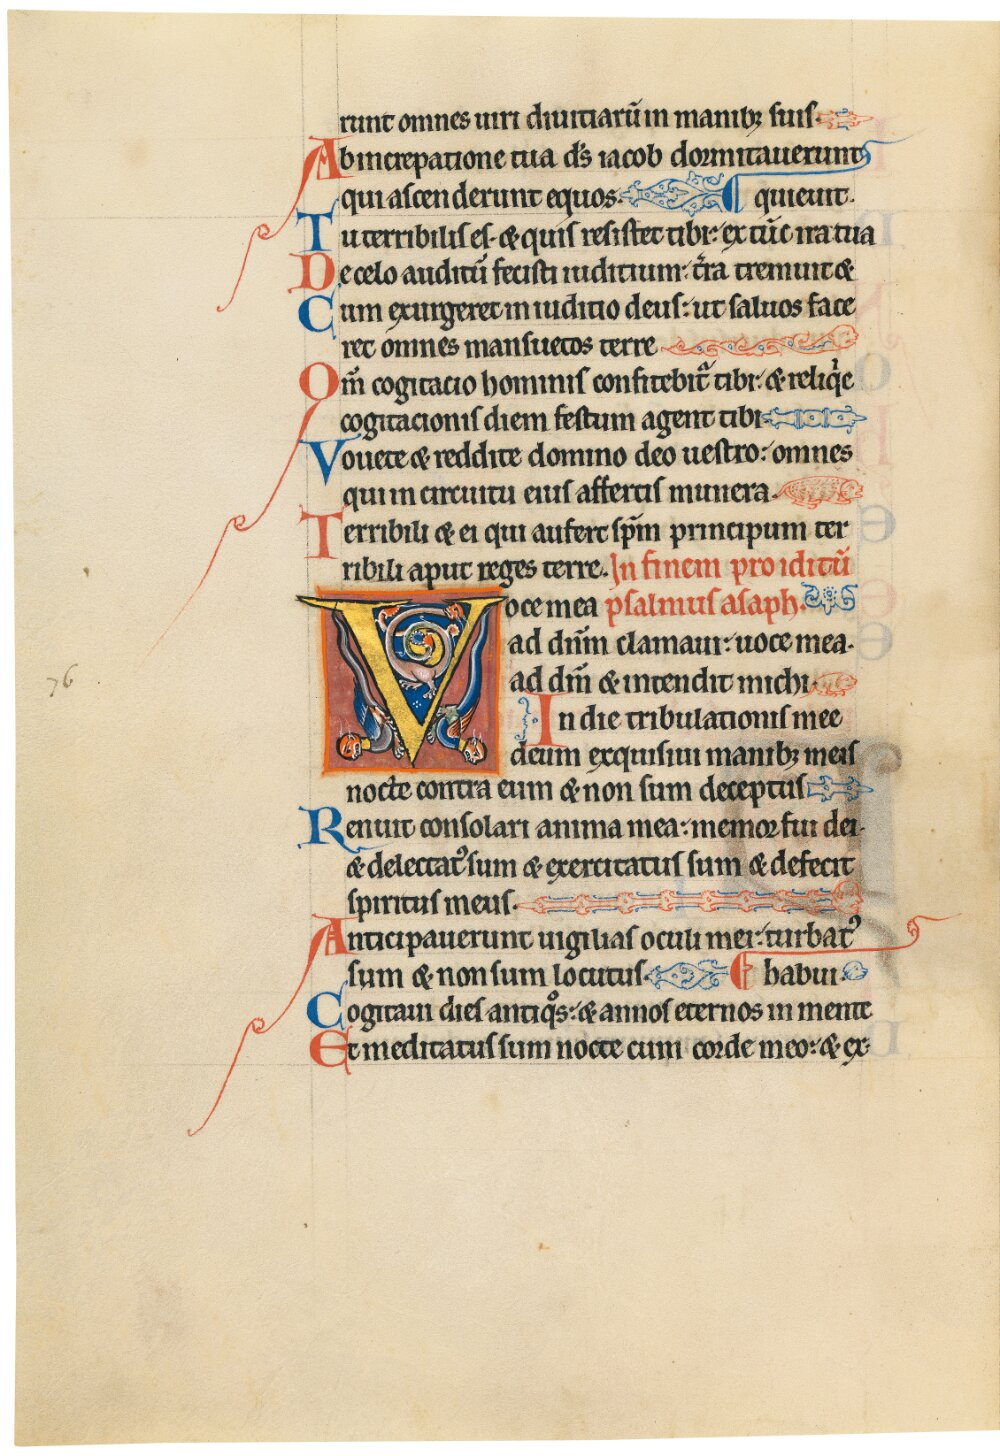 runt omnes uiri diuitiarū in manibꝫ suis.
Ab increpatione tua d̄s iacob dormitauerunt
qui ascenderunt equos. ¶ quieuit.
Tu terribilis es. & quis resistet tibi: ex tūc ira tua
De celo auditū fecisti iuditium: t̄ra tremuit &
Cum exurgeret in iuditio deus: ut saluos face
ret omnes mansuetos terre
Om̄ cogitacio hominis confitebit᷑ tibi: & reliq̇e
cogitacionis diem festum agent tibi
Vouete & reddite domino deo uestro: omnes
qui in circuitu eius affertis munera.
Terribili & ei qui aufert sp̄m principum ter
ribili aput reges terre. In finem pro iditū
Voce mea psalmus asaph.
ad dn̄m clamaui: uoce mea.
ad dm̄ & intendit michi.
In die tribulationis mee
deum exquisiui manibꝫ meis
nocte contra eum & non sum deceptus
Renuit consolari anima mea: memor fui dei.
& delectatꝰ sum & exercitatus sum & defecit
spiritus meus.
Anticipauerunt uigilias oculi mei: turbatꝰ
sum & non sum locutus. ¶ habui.
Cogitaui dies antiqͦs: & annos eternos in mente
Et meditatus sum nocte cum corde meo: & ex-
76